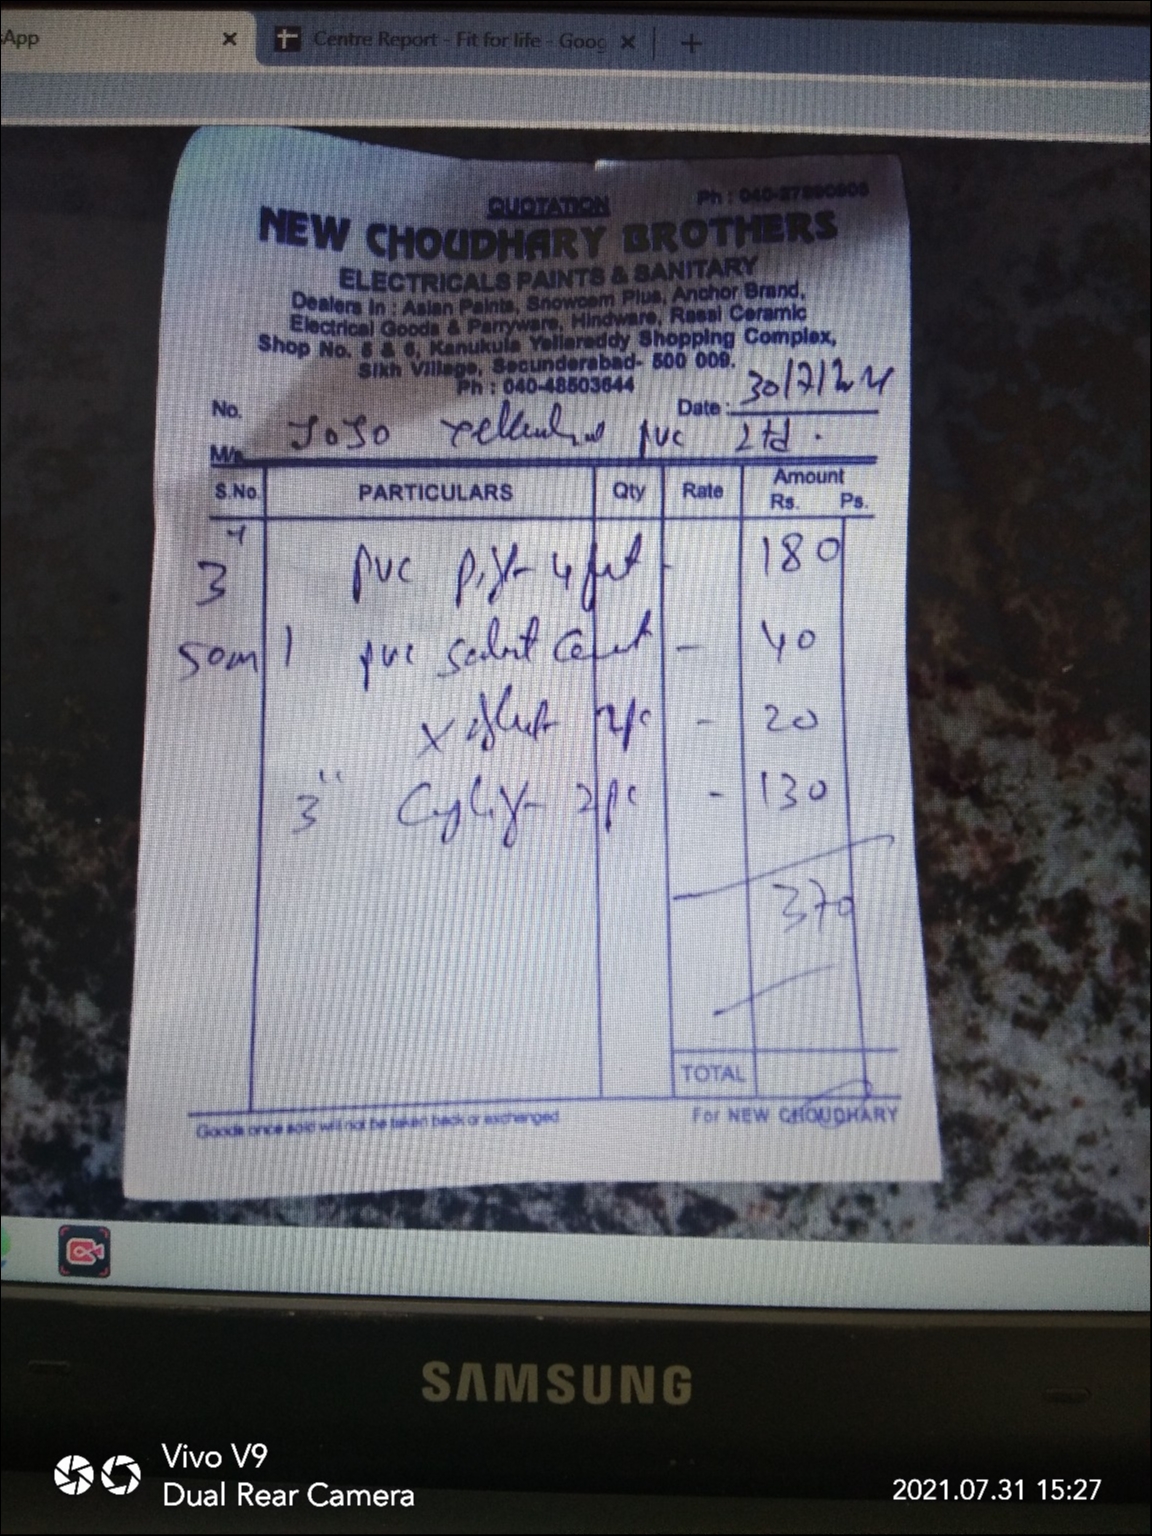 App
Centre Report - Fit for life - Goog
QUOTATION
Ph : 040-27890606
NEW CHOUDHARY BROTHERS
ELECTRICALS PAINTS & SANITARY
Dealers in : Asian Paints, Snowcem Plus, Anchor Brand,
Electrical Goods & Parryware, Hindware, Rassi Ceramic
Shop No. 5 & 6, Kanukula Yellareddy Shopping Complex,
Sikh Village, Secunderabad- 500 009.
Ph : 040-48503644
No.
Date : 30/7/2021
M/s. JoJo pvc Ltd.
S.No. PARTICULARS Qty Rate Amount
Rs. Ps.
3" pvc 4 180
50ml pvc - 40
2pc - 20
3" 2pc - 130
370
TOTAL
Goods once sold will not be taken back or exchanged
For NEW CHOUDHARY
SAMSUNG
Vivo V9
Dual Rear Camera
2021.07.31 15:27